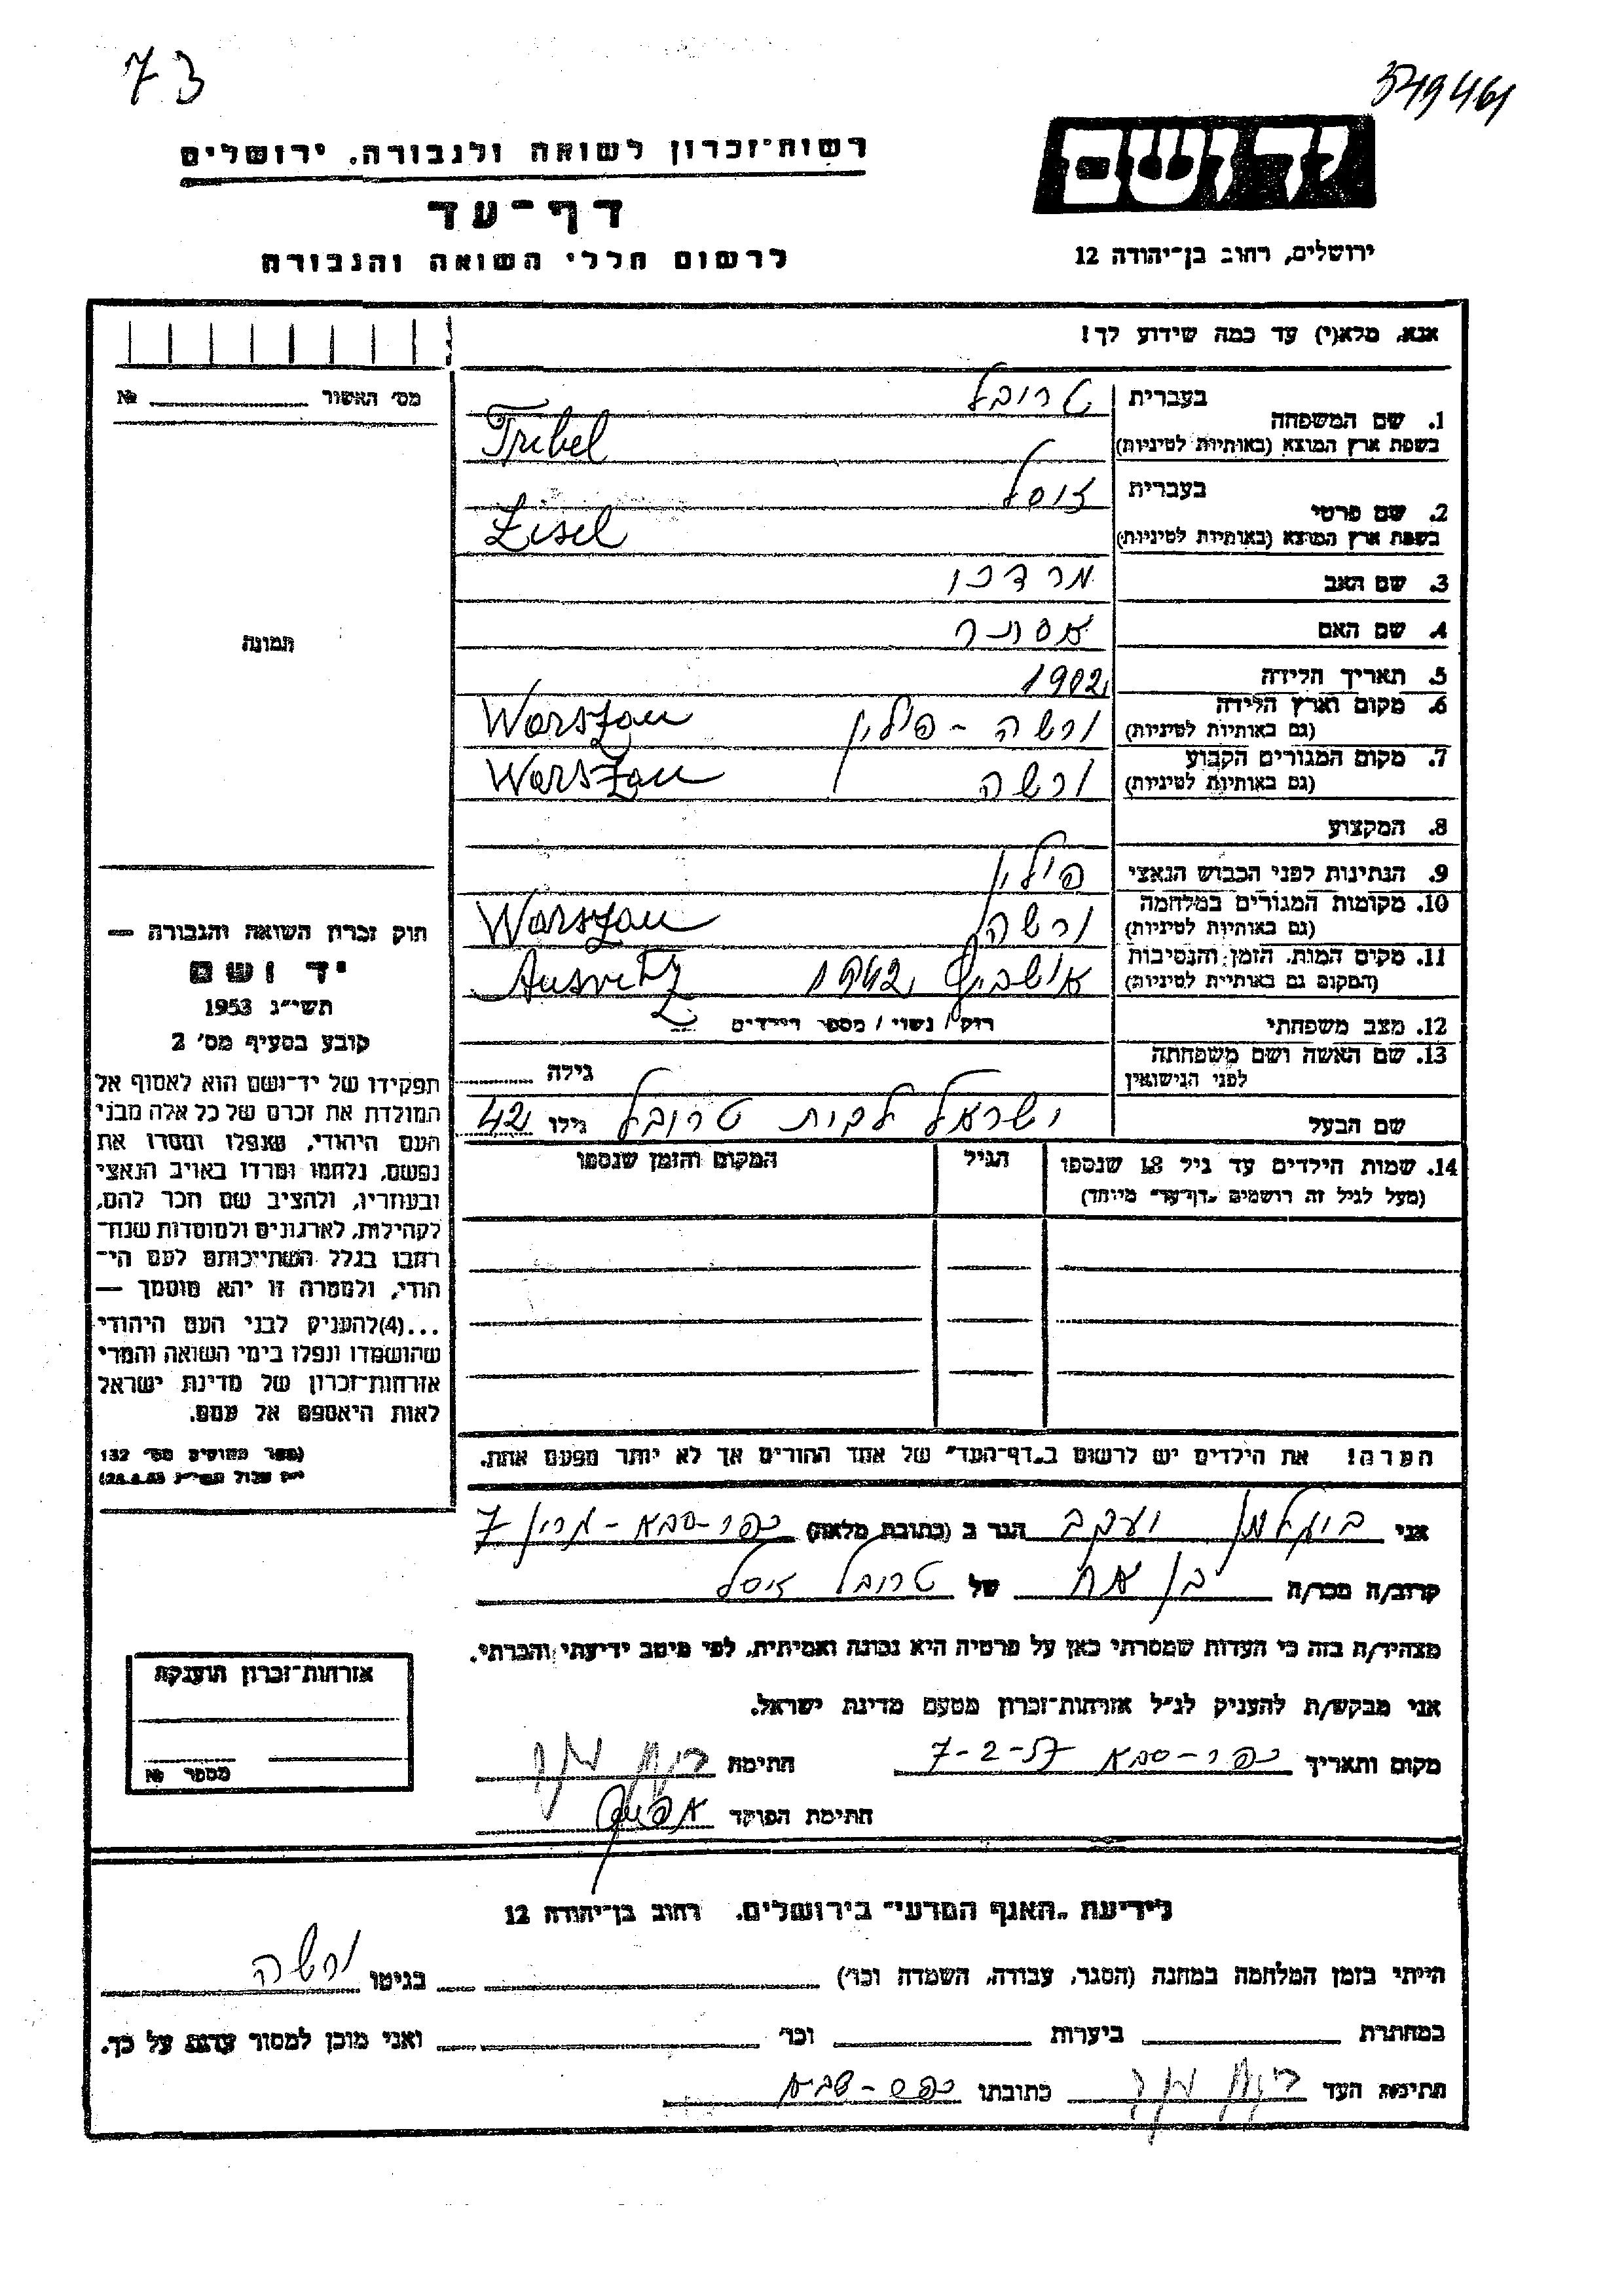 73
349461
יד ושם
רשות־זכרון לשואה ולגבורה. ירושלים
דף־עד
לרשום חללי השואה והגבורה
ירושלים, רחוב בן־יהודה 12
אנא, מלא(י) עד כמה שידוע לך!
מס׳ האשור № 
1. שם המשפחה בעברית טריבל
בשפת ארץ המוצא (באותיות לטיניות) Tribel
2. שם פרטי בעברית זיסל
בשפת ארץ המוצא (באותיות לטיניות) Zisel
3. שם האב מרדכי
4. שם האם אסתר
5. תאריך הלידה 1902
6. מקום וארץ הלידה (גם באותיות לטיניות) ורשה - פולין Warszau
7. מקום המגורים הקבוע (גם באותיות לטיניות) ורשה Warszau
8. המקצוע
9. הנתינות לפני הכבוש הנאצי פולין
10. מקומות המגורים במלחמה (גם באותיות לטיניות) ורשה Warszau
11. מקום המות, הזמן והנסיבות (המקום גם באותיות לטיניות) אושביץ 1942 Ausvitz
12. מצב משפחתי רוק / נשוי / מספר הילדים
13. שם האשה ושם משפחתה לפני הנישואין גילה
שם הבעל ישראל לבית טריבל גילו 42
14. שמות הילדים עד גיל 18 שנספו הגיל המקום והזמן שנספו
(מעל לגיל זה רושמים „דף־עד״ מיוחד)
הערה! את הילדים יש לרשום ב„דף־העד״ של אחד ההורים אך לא יותר מפעם אחת.
תמונה
חוק זכרון השואה והגבורה —
יד ושם
תשי״ג 1953
קובע בסעיף מס׳ 2
תפקידו של יד־ושם הוא לאסוף אל
המולדת את זכרם של כל אלה מבני
העם היהודי, שנפלו ומסרו את
נפשם, נלחמו ומרדו באויב הנאצי
ובעוזריו, ולהציב שם וזכר להם,
לקהילות, לארגונים ולמוסדות שנח־
רבו בגלל השתייכותם לעם הי־
הודי, ולמטרה זו יהא מוסמך —
...(4)להעניק לבני העם היהודי
שהושמדו ונפלו בימי השואה והמרי
אזרחות־זכרון של מדינת ישראל
לאות היאספם אל עמם.
(ספר החוקים מס׳ 132
אני יעקב הגר ב (כתובת מלאה) כפר-סבא 7
קרוב/ה מכר/ה בן אח של טריבל זיסל
מצהיר/ה בזה כי העדות שמסרתי כאן על פרטיה היא נכונה ואמיתית, לפי מיטב ידיעתי והכרתי.
אני מבקש/ת להעניק לנ״ל אזרחות־זכרון מטעם מדינת ישראל.
מקום ותאריך כפר-סבא 7-2-57 חתימה
חתימת הפוקד
אזרחות־זכרון הוענקה
מספר №
לידיעת „האגף המדעי״ בירושלים, רחוב בן־יהודה 12
הייתי בזמן המלחמה במחנה (הסגר, עבודה, השמדה וכו׳) בגיטו ורשה
במחתרת ביערות וכו׳ ואני מוכן למסור עדות על כך.
חתימת העד כתובתו